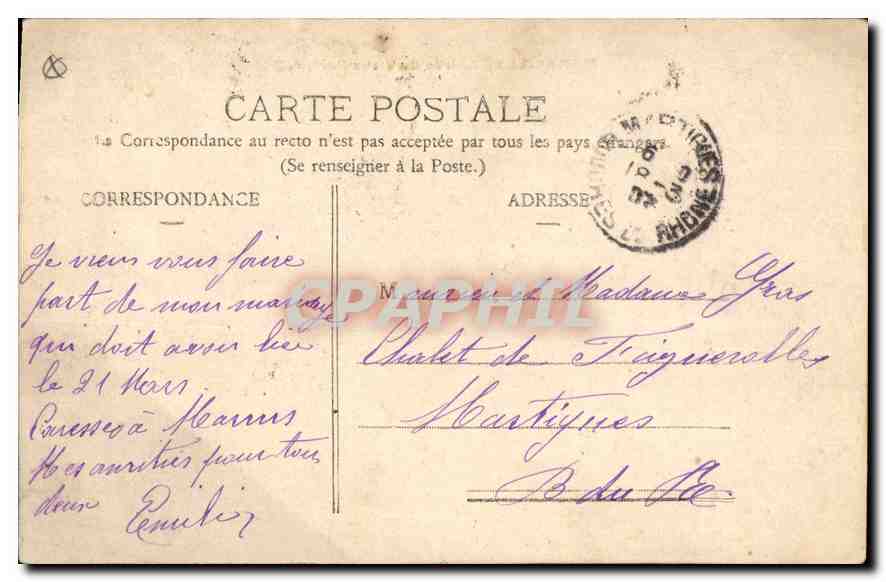 CARTE POSTALE
La Correspondance au recto n'est pas acceptée par tous les pays étrangers
(Se renseigner à la Poste.)
CORRESPONDANCE
ADRESSE
MARTIGUES
BOUCHES DU RHONE
Je viens vous faire
part de mon mariage
qui doit avoir lieu
le 21 Mars.
Caresses à Marius
Mes amitiés pour tous
deux
Emilie
Monsieur et Madame Gras
Chalet de Figuerolles
Martigues
B du Rh
CPAPHIL